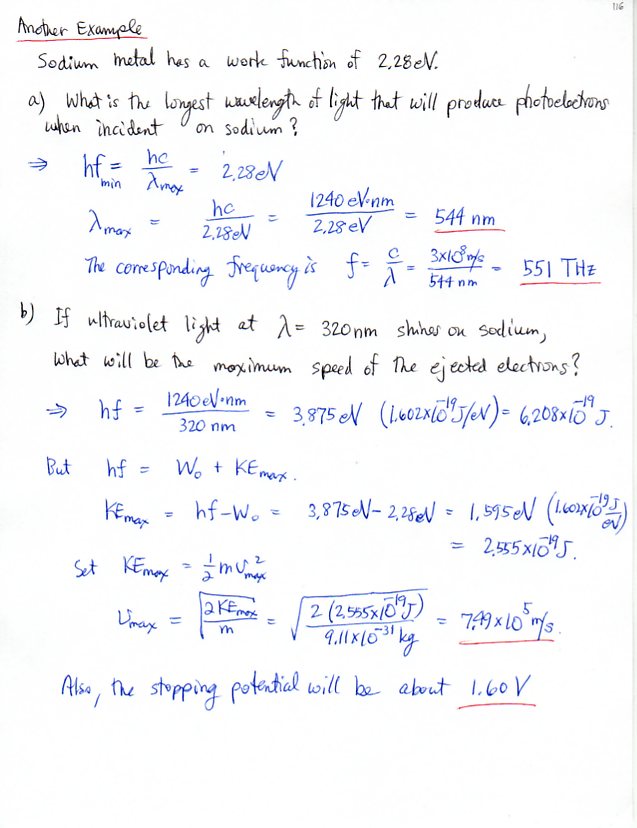 116
Another Example
Sodium metal has a work function of 2.28 eV.
a) What is the longest wavelength of light that will produce photoelectrons
when incident on sodium?
⇒ hf_min = hc/λ_max = 2.28 eV
λ_max = hc/2.28 eV = 1240 eV·nm/2.28 eV = 544 nm
The corresponding frequency is f = c/λ = 3×10⁸ m/s/544 nm = 551 THz
b) If ultraviolet light at λ = 320 nm shines on sodium,
what will be the maximum speed of the ejected electrons?
⇒ hf = 1240 eV·nm/320 nm = 3.875 eV (1.602×10⁻¹⁹ J/eV) = 6.208×10⁻¹⁹ J.
But hf = W₀ + KE_max.
KE_max = hf - W₀ = 3.875 eV - 2.28 eV = 1.595 eV (1.602×10⁻¹⁹ J/eV)
= 2.555×10⁻¹⁹ J.
Set KE_max = 1/2 m v_max²
v_max = √(2KE_max/m) = √(2(2.555×10⁻¹⁹ J)/9.11×10⁻³¹ kg) = 7.49×10⁵ m/s.
Also, the stopping potential will be about 1.60 V